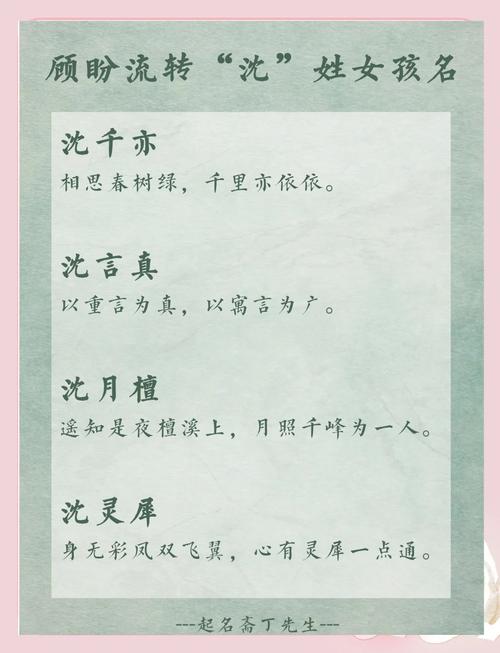 顾盼流转“沈”姓女孩名
沈千亦
相思春树绿，千里亦依依。
沈言真
以重言为真，以寓言为广。
沈月檀
遥知是夜檀溪上，月照千峰为一人。
沈灵犀
身无彩凤双飞翼，心有灵犀一点通。
---起名斋丁先生---